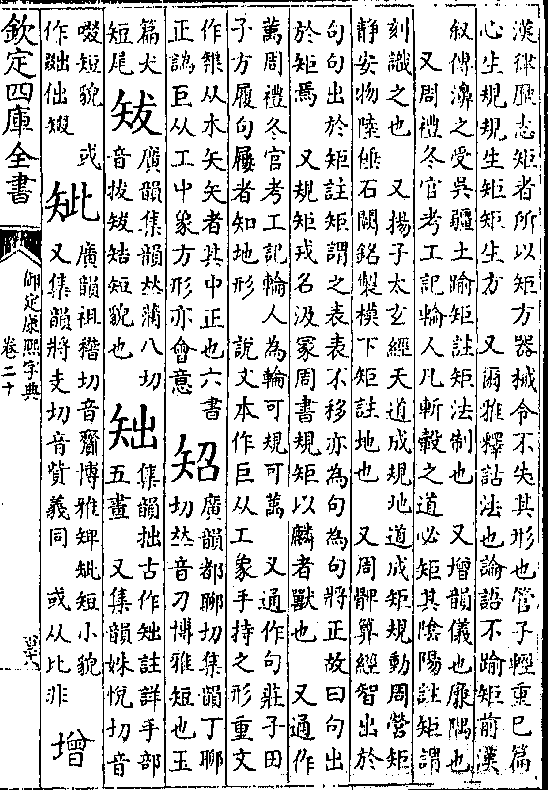 漢律歷志矩者所以矩方器械令不失其形也管子輕重已篇
心生規規生矩矩生方　又爾雅釋詁法也論語不踰矩前漢
叙傳濞之受吳疆土踰矩註矩法制也　又增韻儀也廉隅也
又周禮冬官考工記輪人凡斬轂之道必矩其陰陽註矩謂
刻識之也　又揚子太玄經天道成規地道成矩規動周營矩
靜安物陸倕石闕銘製模下矩註地也　又周髀算經智出於
句句出於矩註矩謂之表表不移亦為句為句將正故曰句出
於矩焉　又規矩戎名汲冢周書規矩以麟者獸也　又通作
萬周禮冬官考工記輪人為輪可規可萬　又通作句莊子田
子方履句屨者知地形　說文本作巨从工象手持之形重文
作榘从木矢矢者其中正也六書
正譌巨从工中象方形亦會意
䂏
廣韻都聊切集韻丁聊
切𠀤音刀博雅短也玉
篇犬
短尾
䂍
廣韻集韻𠀤蒲八切
音拔䂍䂓短貌也
䂐
集韻拙古作䂐註詳手部
五畫　又集韻姝悅切音
啜短貌　或
作𥏘㑁𥏬
𥏪
廣韻祖稽切音齎博雅䂠𥏪短小貌
又集韻將支切音貲義同　或从比非
增
欽定四庫全書
御定康熙字典
卷二十